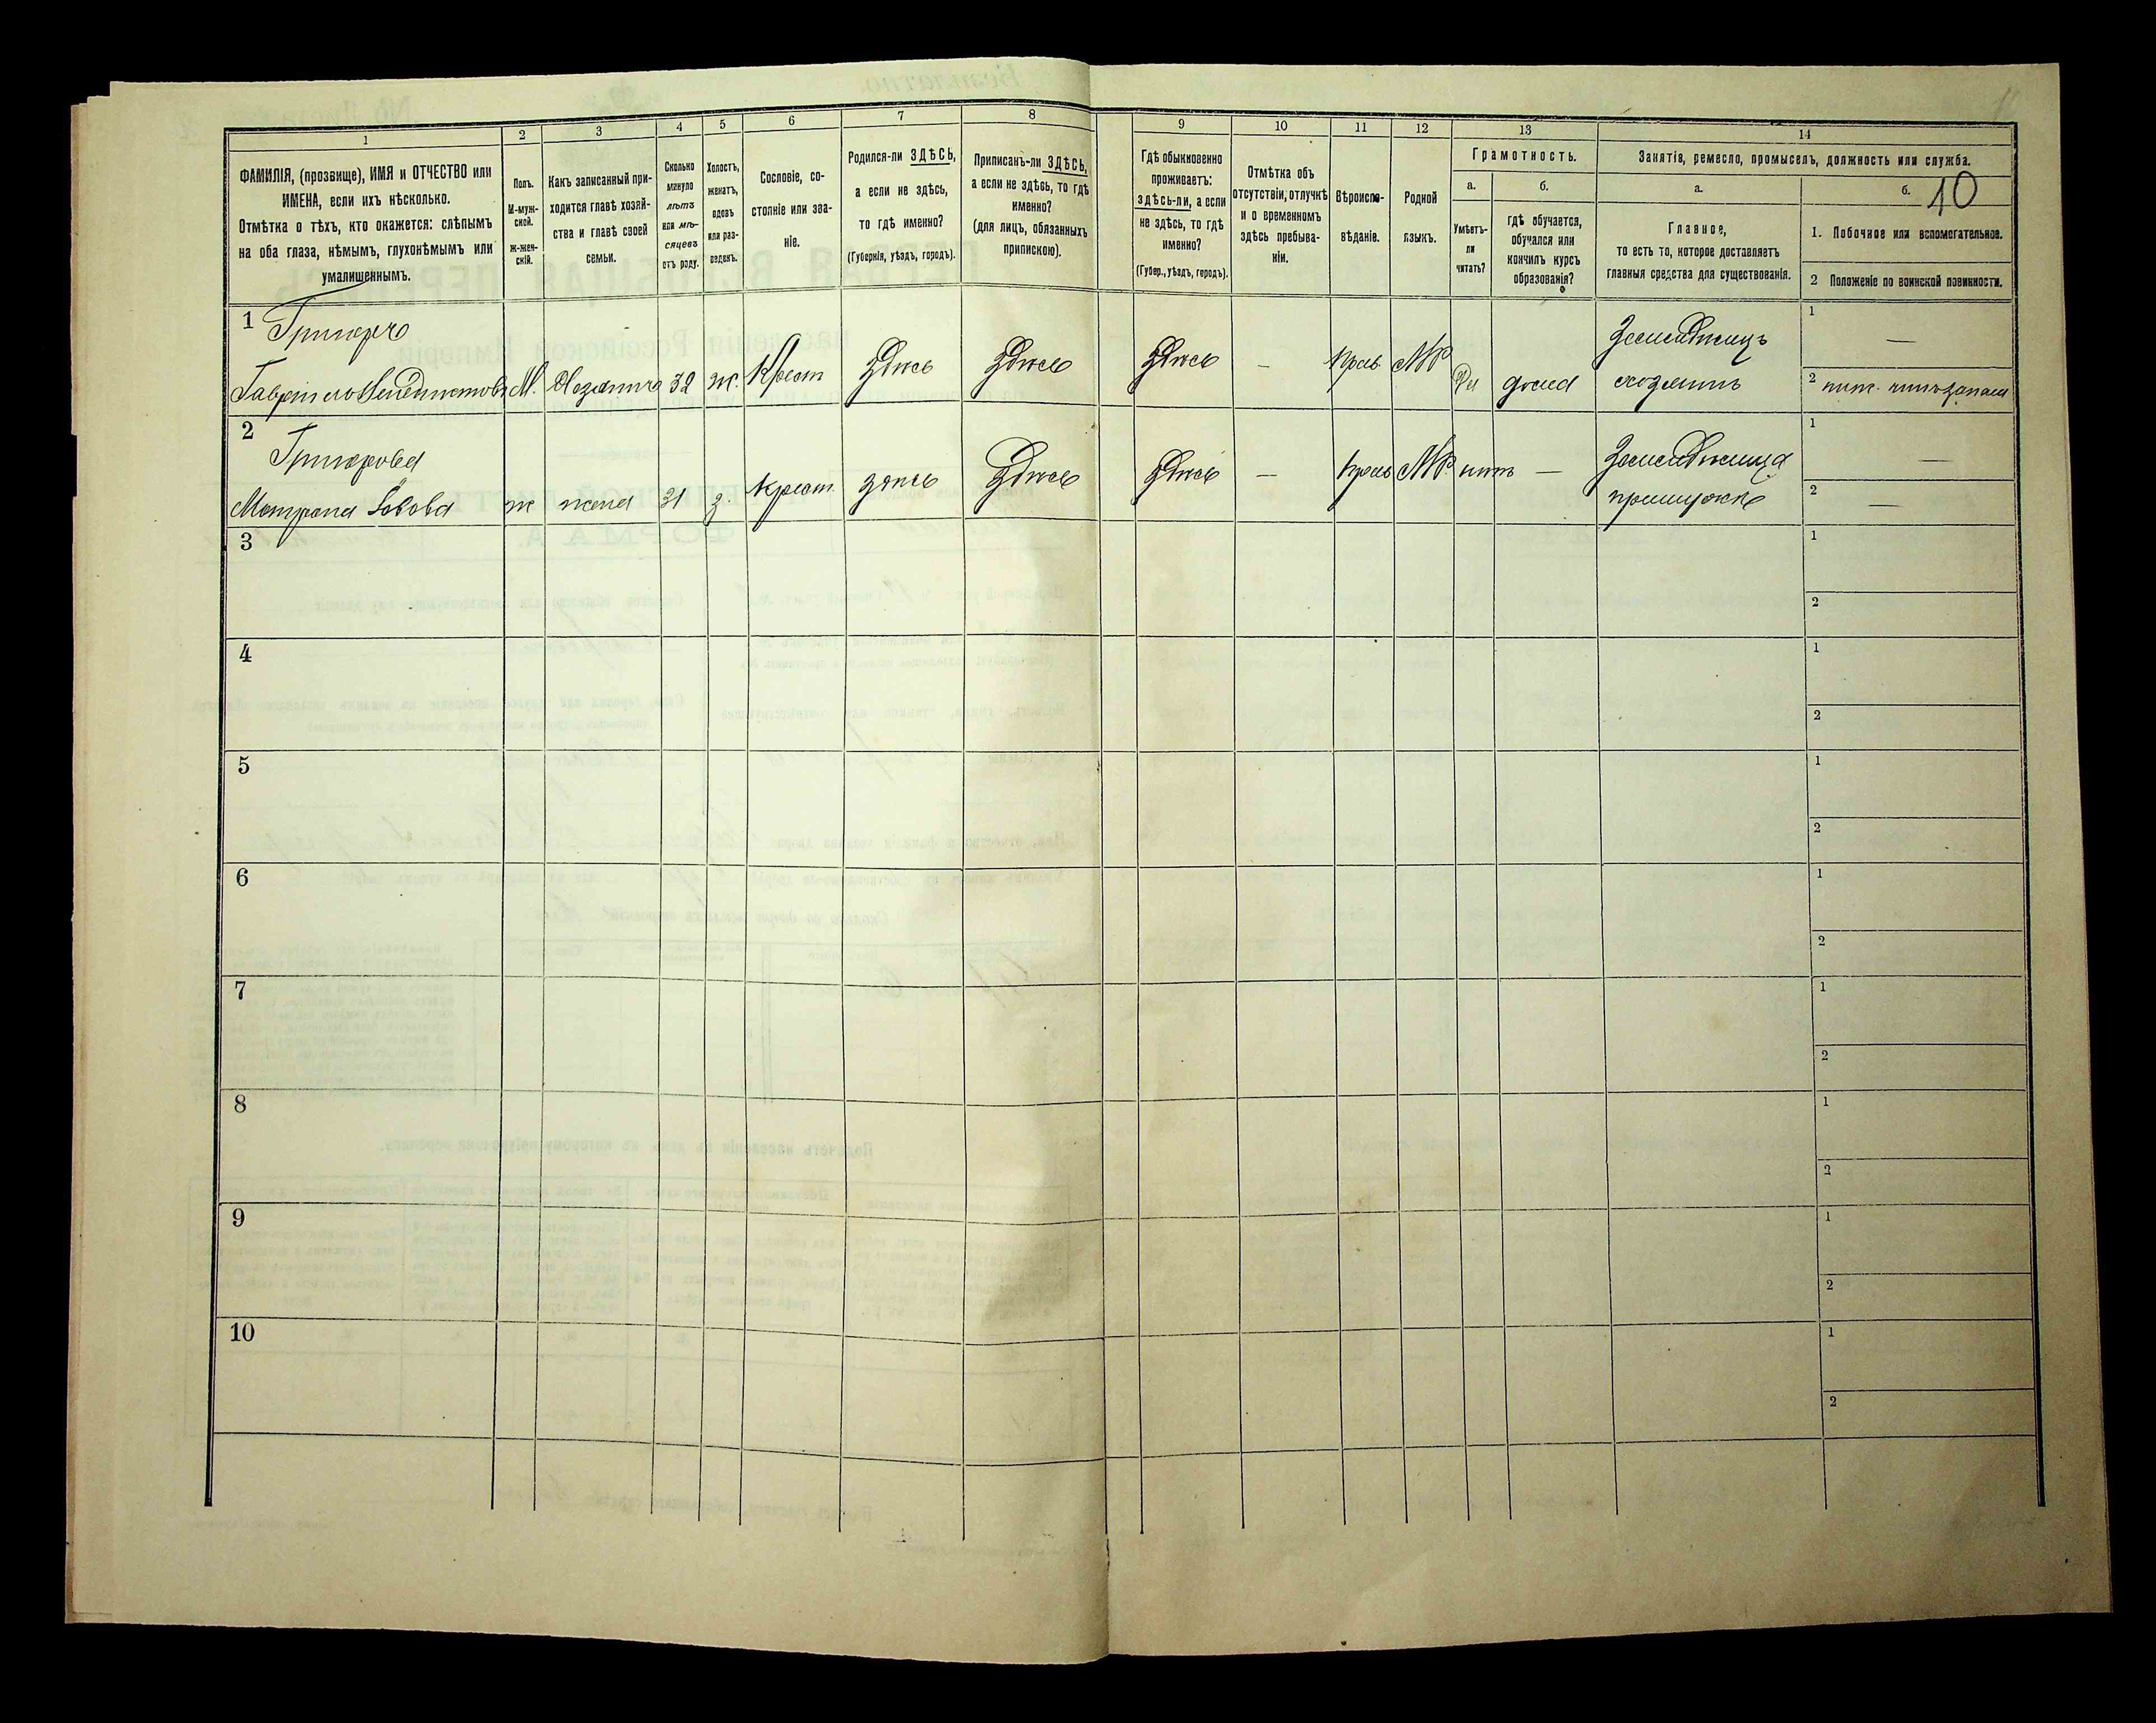 10
1
2
3
4
5
6
7
8
9
10
11
12
13
14
ФАМИЛІЯ, (прозвище), ИМЯ и ОТЧЕСТВО или
ИМЕНА, если ихъ нѣсколько.
Отмѣтка о тѣхъ, кто окажется: слѣпымъ
на оба глаза, нѣмымъ, глухонѣмымъ или
умалишеннымъ.
Полъ.
М-муж-
ской.
Ж-жен-
скій.
Какъ записанный при-
ходится главѣ хозяй-
ства и главѣ своей
семьи.
Сколько
минуло
лѣтъ
или мѣ-
сяцевъ
отъ роду.
Холостъ,
женатъ,
вдовъ
или раз-
веденъ.
Сословіе, со-
стояніе или зва-
ніе.
Родился-ли ЗДѢСЬ,
а если не здѣсь,
то гдѣ именно?
(Губернія, уѣздъ, городъ).
Приписанъ-ли ЗДѢСЬ,
а если не здѣсь, то гдѣ
именно?
(для лицъ, обязанныхъ
припискою).
Гдѣ обыкновенно
проживаетъ:
здѣсь-ли, а если
не здѣсь, то гдѣ
именно?
(Губер., уѣздъ, городъ).
Отмѣтка объ
отсутствіи, отлучкѣ
и о временномъ
здѣсь пребыва-
ніи.
Вѣроиспо-
вѣданіе.
Родной
языкъ.
Грамотность.
а.
Умѣетъ-
ли
читать?
б.
гдѣ обучается,
обучался или
кончилъ курсъ
образованія?
Занятія, ремесло, промыселъ, должность или служба.
а.
Главное,
то есть то, которое доставляетъ
главныя средства для существованія.
б.
1. Побочное или вспомогательное.
2 Положеніе по воинской повинности.
1
Гавріилъ М. Хозяинъ 32 ж. Крест здѣсь Здѣсь Здѣсь — Прав МР Да дома хозяинъ
1 —
2
2
Григорова
Матрона ж жена 31 з. крест. здѣсь Здѣсь Здѣсь — Прав МР нѣтъ —
1 —
2 —
3
1
2
4
1
2
5
1
2
6
1
2
7
1
2
8
1
2
9
1
2
10
1
2